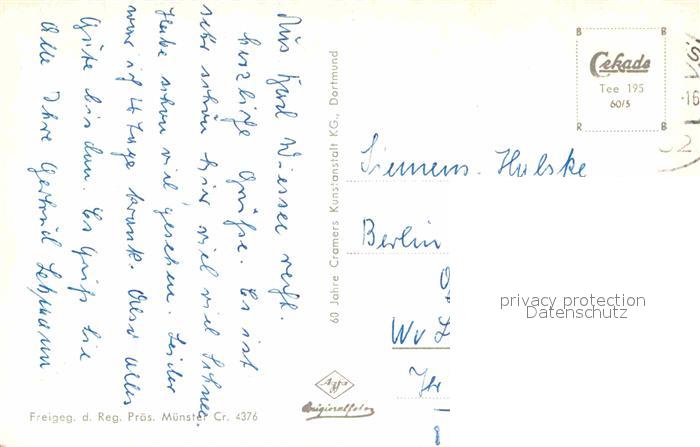 Aus Bad Wiessee recht
herzliche Grüße. Es ist
sehr schön hier viel viel Schnee.
Habe schon viel gesehen. Leider
war ich 4 Tage krank. Also alles
Gute bis dann. Es grüßt Sie
alle Ihre Gertrud Lehmann
60 Jahre Cramers Kunstanstalt KG., Dortmund
Freigeg. d. Reg. Präs. Münster Cr. 4376
Agfa
Originalfoto
B B
Cekade
Tee 195
60/5
R B
Siemens. Halske
Berlin
Wv
privacy protection
Datenschutz